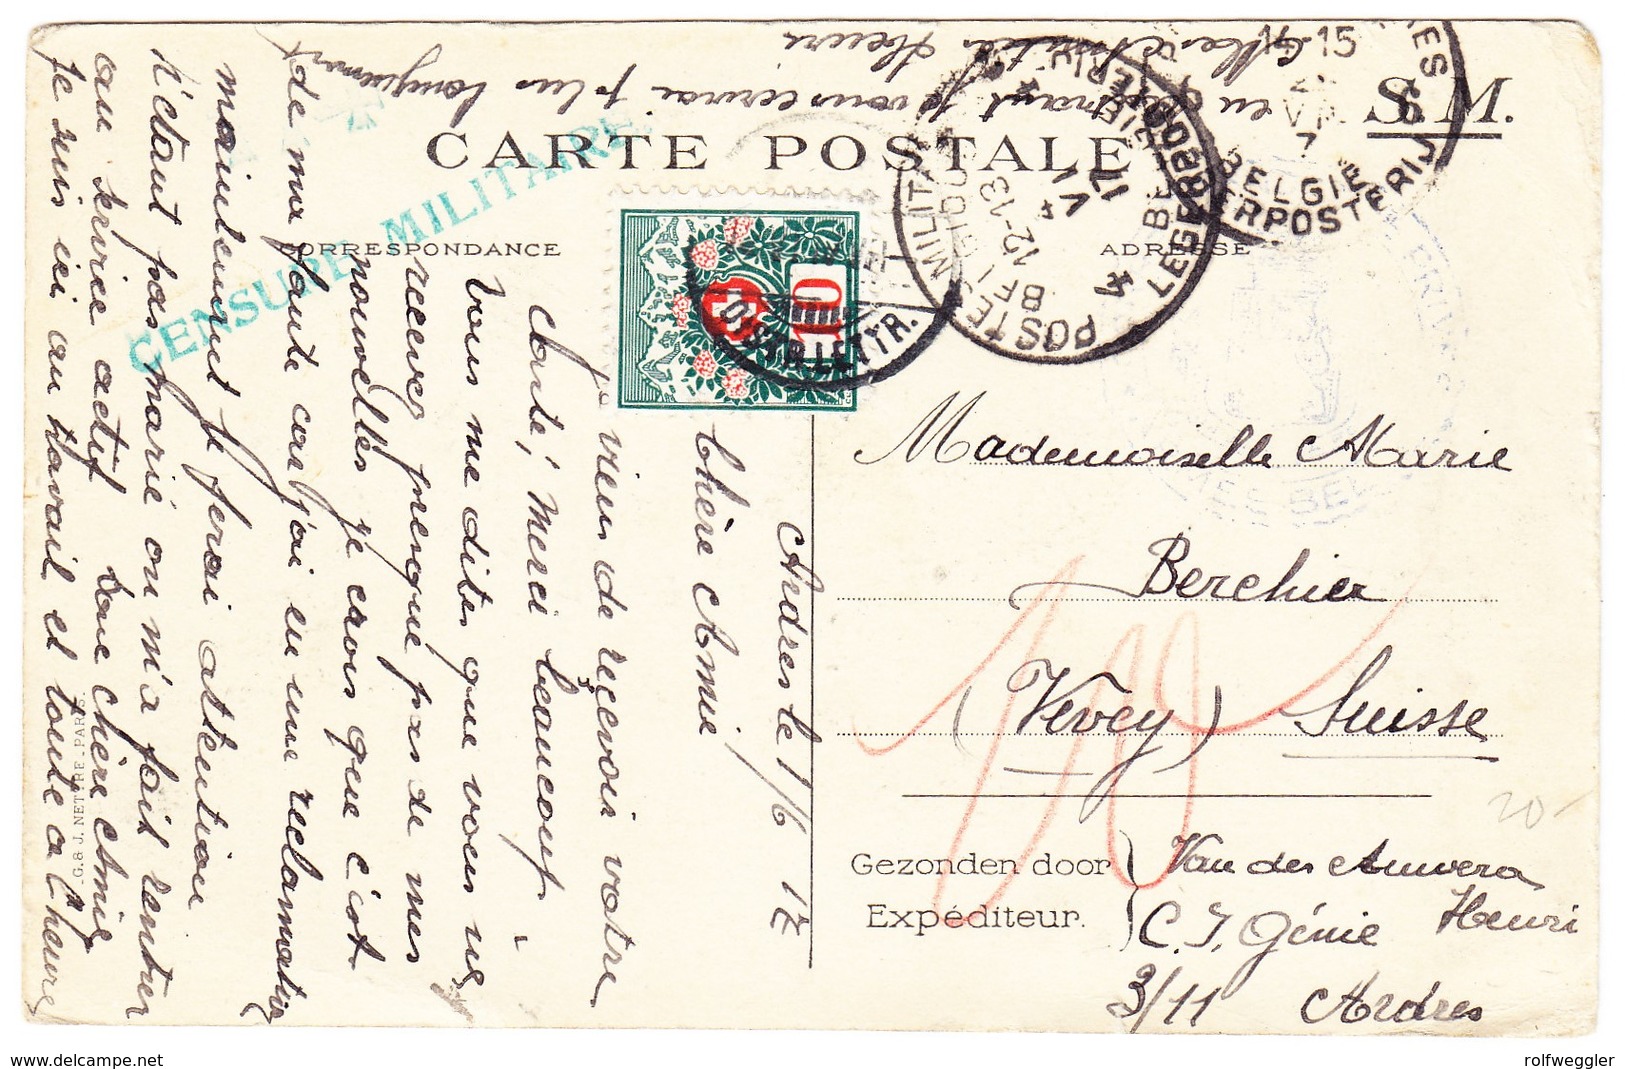 S.M.
CARTE POSTALE
CORRESPONDANCE
ADRESSE
CENSURE MILITAIRE
Ardres le 1/6 17
Chère Amie
Je viens de recevoir votre
Carte, merci beaucoup.
Vous me dites que vous ne
recevez presque pas de mes
nouvelles je crois que c'est
de ma faute car j'ai eu une reclamation
maintenant je ferai attention
N'étant pas marié on m'a fait rentrer
au service actif donc chère Amie
Je suis ici au travail et toute a l'heure
en je vous ecrirai plus longuement
Amitiés Henri
10
DIST. LETTR.
POSTES MILITAIRES
BELGIE
LEGERPOSTERIJ
12-13
14-15
BELGIE
LEGERPOSTERIJ
Mademoiselle Marie
Berchier
(Vevey) Suisse
Gezonden door
Expéditeur.
Van der Auwera
Henri
C.I. Génie
3/11 Ardres
20-
G. & J. NETTRE. PARIS.
rolfweggler